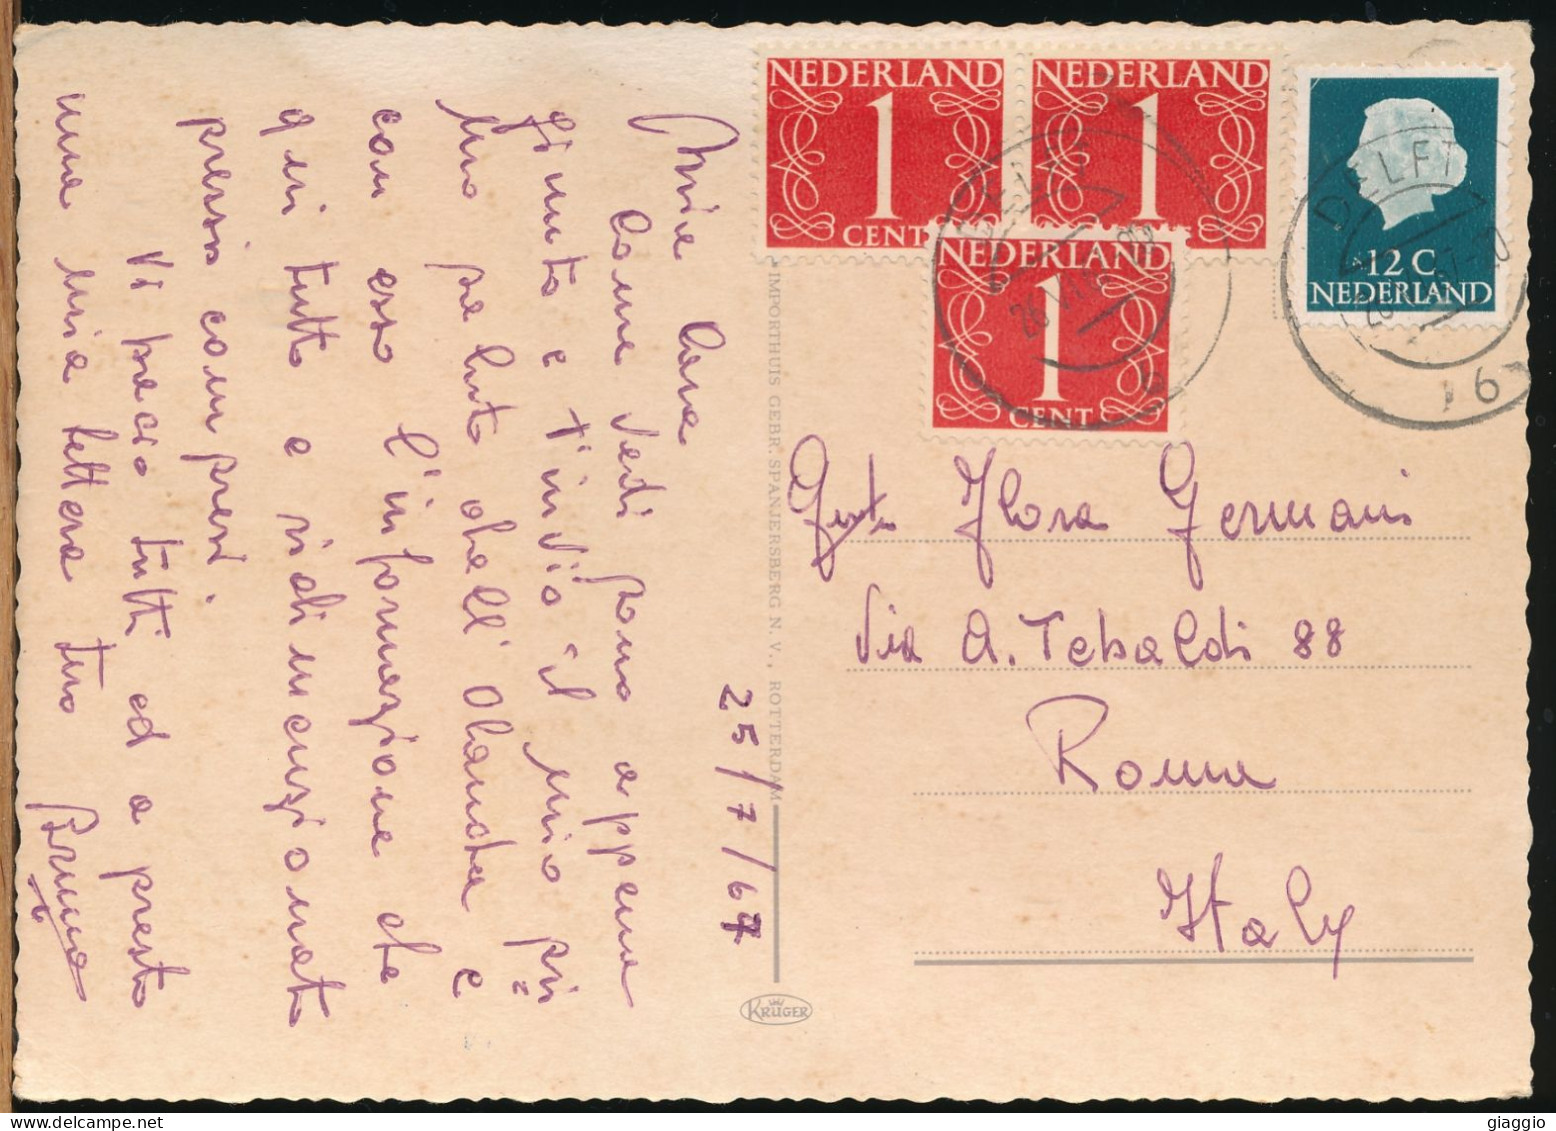 Mia Cara
Come vedi sono appena
giunto e t'invio il mio pri=
mo saluto dall'Olanda e
con esso l'informazione che
qui tutto e ridimenzionato
prezzi compresi.
Vi bacio tutti ed a presto
una mia lettera tuo
Bruno
25/7/67
IMPORTHUIS GEBR. SPANJERSBERG N.V., ROTTERDAM
KRÜGER
NEDERLAND
1
CENT
NEDERLAND
1
NEDERLAND
1
CENT
12 C
NEDERLAND
DELFT
6
DELFT
6
Flora Germani
Via A. Tebaldi 88
Roma
Italy
giaggio